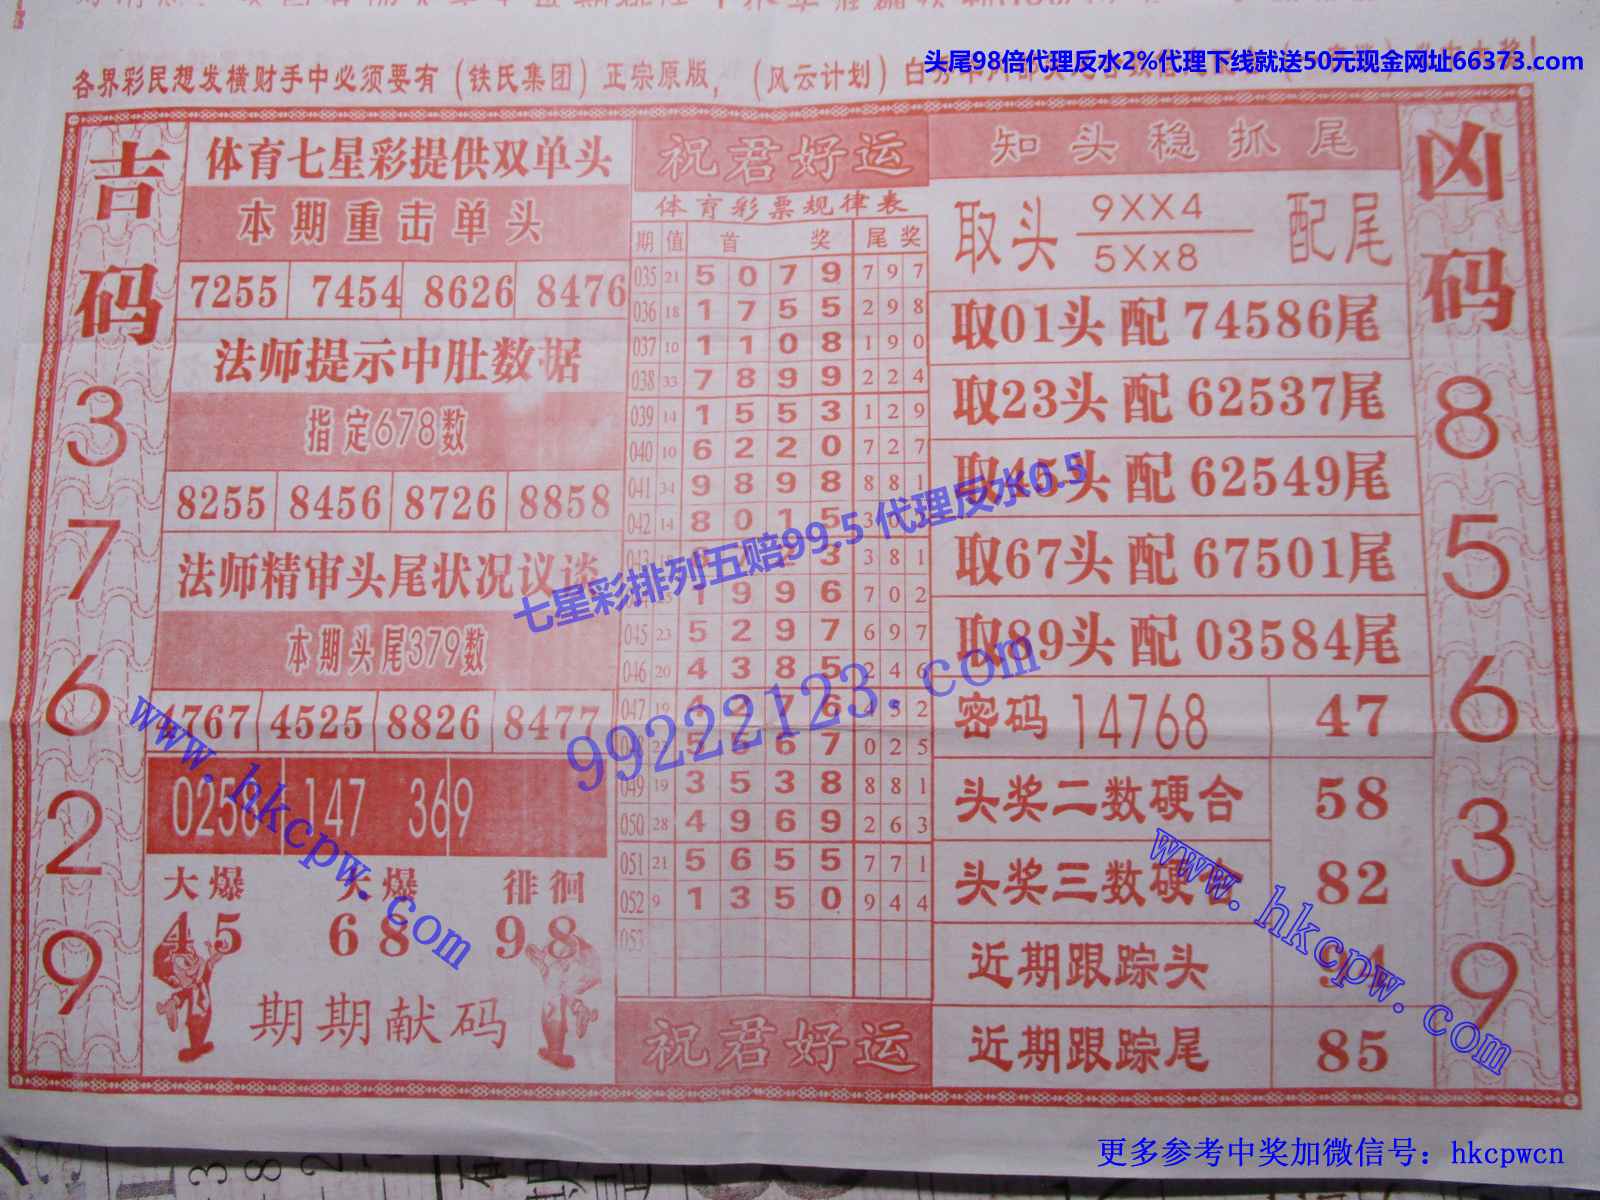 头尾98倍代理反水2%代理下线就送50元现金网址66373.com
各界彩民想发横财手中必须要有（铁氏集团）正宗原版，（风云计划）
吉码
3
7
6
2
9
体育七星彩提供双单头
本期重击单头
7255 7454 8626 8476
法师提示中肚数据
指定678数
8255 8456 8726 8858
法师精审头尾状况议谈
本期头尾379数
4767 4525 8826 8477
0258 147 369
大爆 大爆 徘徊
45 68 98
期期献码
祝君好运
体育彩票规律表
期 值 首 奖 尾 奖
035 21 5 0 7 9 7 9 7
036 18 1 7 5 5 2 9 8
037 10 1 1 0 8 1 9 0
038 33 7 8 9 9 2 2 4
039 14 1 5 5 3 1 2 9
040 10 6 2 2 0 7 2 7
041 34 9 8 9 8 8 8 1
042 14 8 0 1 5 3
043 3 3 8 1
1 9 9 6 7 0 2
045 23 5 2 9 7 6 9 7
046 20 4 3 8 5 2 4 6
047 19 4 2 7 6 1 5 2
5 2 6 7 0 2 5
049 19 3 5 3 8 8 8 1
050 28 4 9 6 9 2 6 3
051 21 5 6 5 5 7 7 1
052 9 1 3 5 0 9 4 4
053
祝君好运
知头稳抓尾
取头 9XX4 配尾
5Xx8
取01头 配 74586尾
取23头 配 62537尾
取45头 配 62549尾
取67头 配 67501尾
取89头 配 03584尾
密码 14768 47
头奖二数硬合 58
头奖三数硬合 82
近期跟踪头 94
近期跟踪尾 85
凶码
8
5
6
3
9
七星彩排列五赔99.5 代理反水0.5
99222123.com
www.hkcpw.com
www.hkcpw.com
更多参考中奖加微信号：hkcpwcn